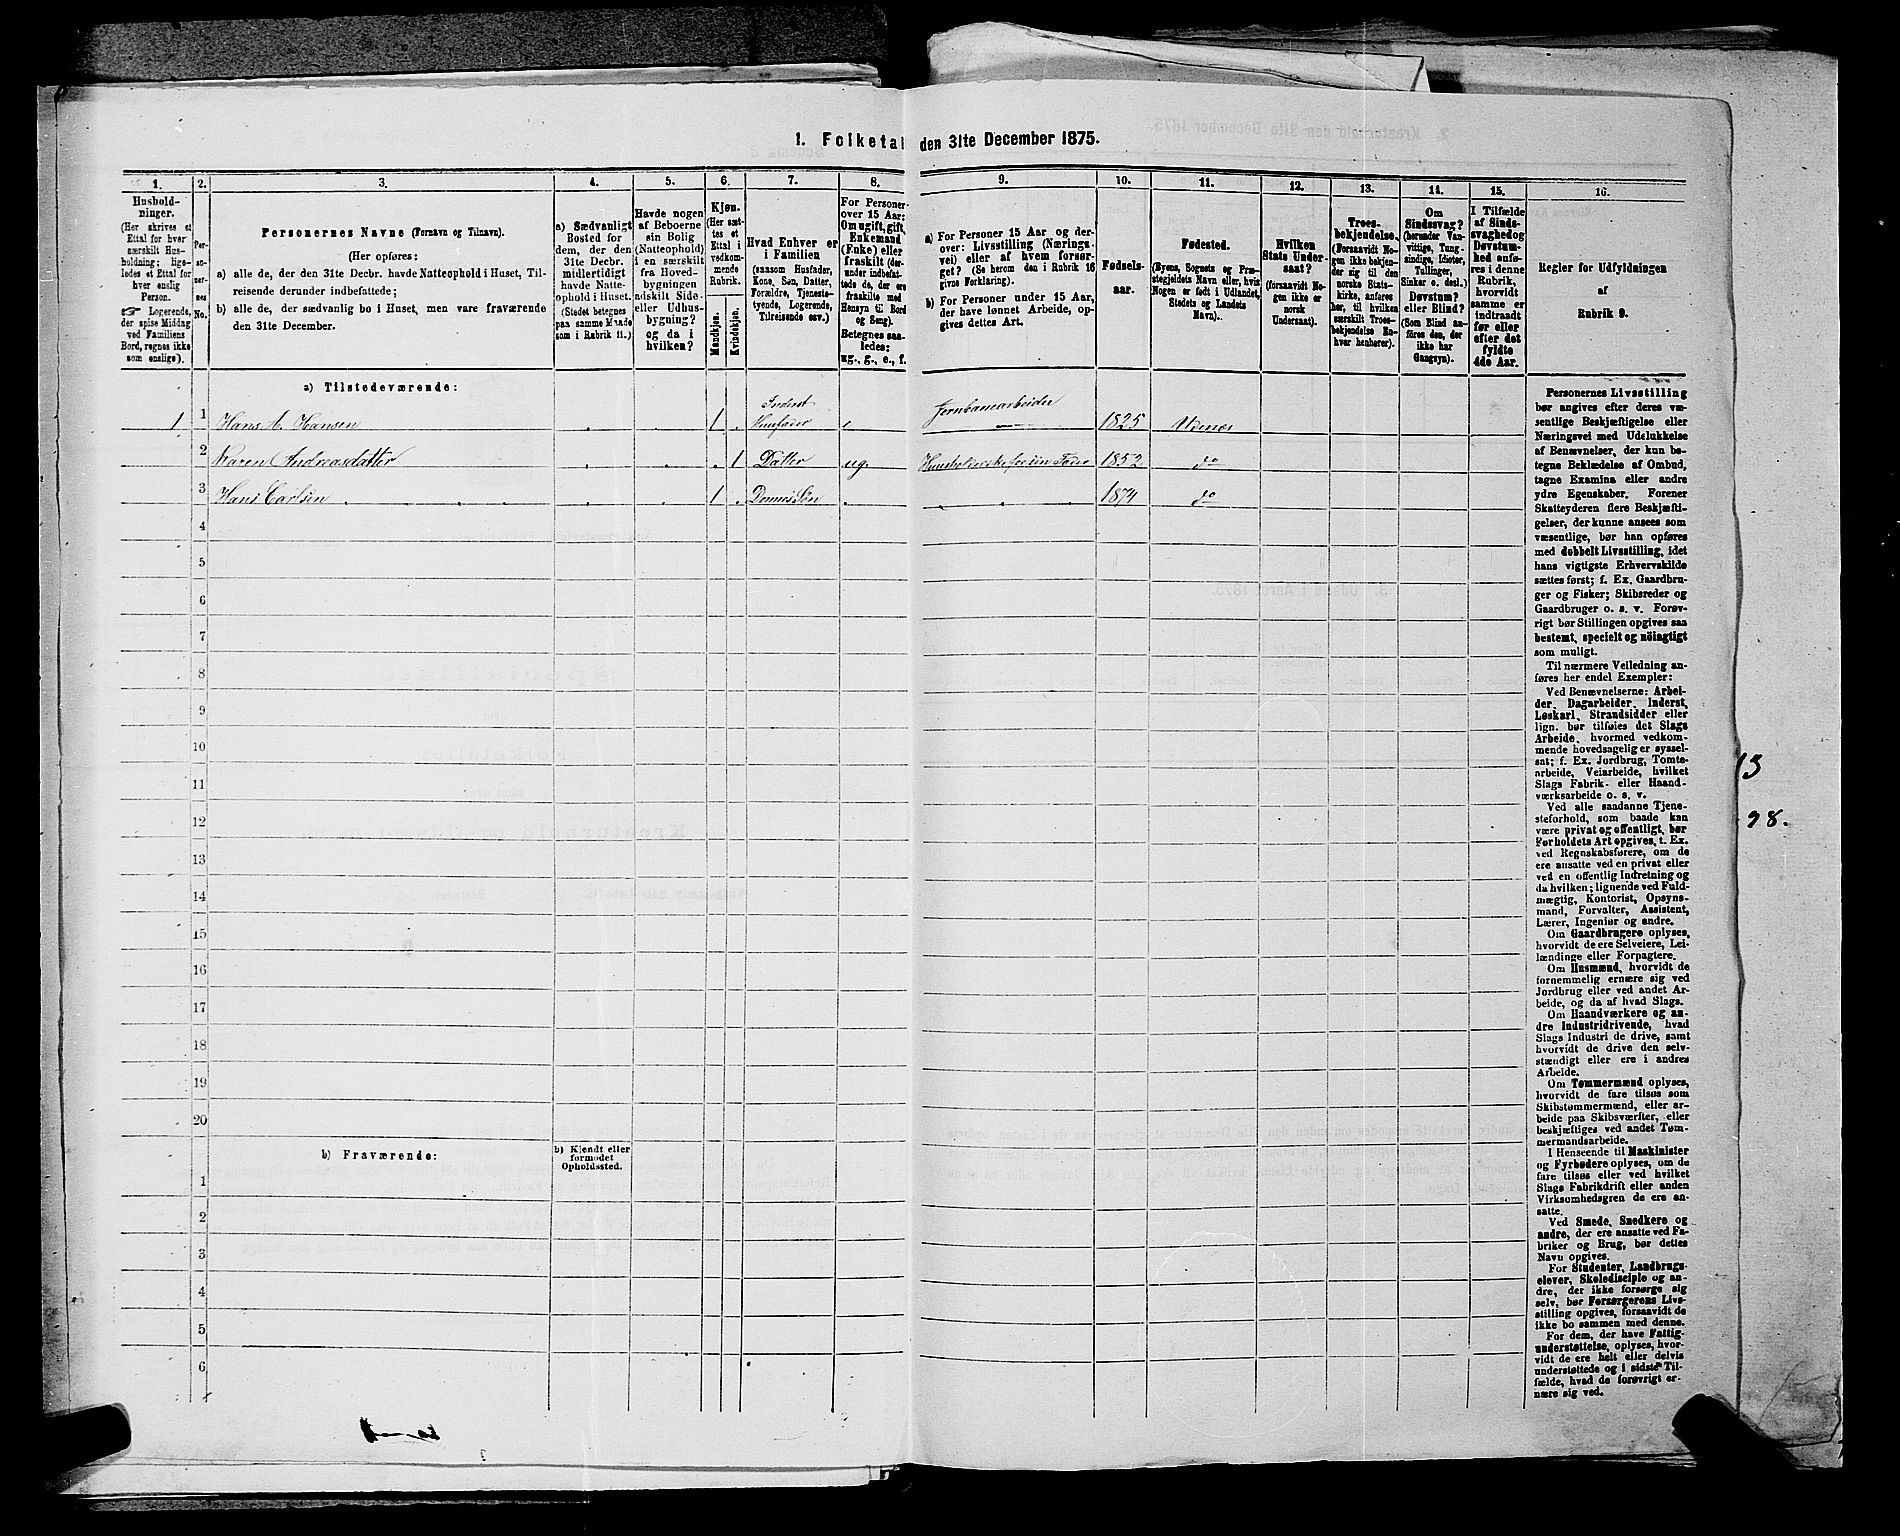 1. Folketal den 31te December 1875.
1. 2. 3. 4. 5. 6. 7. 8. 9. 10. 11. 12. 13. 14. 15. 16.
Hushold-
ninger.
(Her skrives et
Ettal for hver
særskilt Hus-
holdning; lige-
ledes et Ettal for
hver enslig
Person.
☞ Logerende,
der spise Middag
ved Familiens
Bord, regnes ikke
som enslige).
Per-
so-
ner-
nes
No.
Personernes Navne (Fornavn og Tilnavn).
(Her opføres:
a) alle de, der den 31te Decbr. havde Natteophold i Huset, Til-
reisende derunder indbefattede;
b) alle de, der sædvanlig bo i Huset, men vare fraværende
den 31te December.
a) Sædvanligt
Bosted for
dem, der den
31te Decbr.
midlertidigt
havde Natte-
ophold i Huset.
(Stedet betegnes
paa samme Maade
som i Rubrik 11.)
Havde nogen
af Beboerne
sin Bolig
(Natteophold)
i en særskilt
fra Hoved-
bygningen
adskilt Side-
eller Udhus-
bygning?
og da i
hvilken?
Kjøn.
(Her sæt-
tes et
Ettal i
vedkom-
mende
Rubrik.
Mandkjøn.
Kvindekjøn.
Hvad Enhver er
i Familien
(saasom Husfader,
Kone, Søn, Datter,
Forældre, Tjeneste-
tyende, Logerende,
Tilreisende osv.)
For Personer
over 15 Aar:
Om ugift, gift,
Enkemand
(Enke) eller
fraskilt (der-
under indbefat-
tede de, der ere
fraskilte med
Hensyn til Bord
og Seng).
Betegnes saa-
ledes:
ug., g., e., f.
a) For Personer 15 Aar og der-
over: Livsstilling (Nærings-
vei) eller af hvem forsør-
get? (Se herom den i Rubrik 16
givne Forklaring).
b) For Personer under 15 Aar,
der have lønnet Arbeide, op-
gives dettes Art.
Fødsels-
aar.
Fødested.
(Byens, Sognets og Præ-
stegjeldets Navn eller, hvis
Nogen er født i Udlandet,
Stedets og Landets
Navn).
Hvilken
Stats Under-
saat?
(forsaavidt No-
gen ikke er
norsk
Undersaat).
Troes-
bekjendelse.
(Forsaavidt No-
gen ikke bekjen-
der sig til den
norske Stats-
kirke, anføres
her, til hvilken
særskilt Troes-
bekjendelse En-
hver henhører).
Om
Sindssvag?
(herunder Van-
vittige, Tung-
sindige, Idioter,
Tullinger,
Sinker o. desl.)
Døvstum?
eller Blind?
(Som Blind an-
føres den, der
ikke har
Gangsyn).
I Tilfælde
af Sinds-
svaghed og
Døvstum-
hed anfø-
res i denne
Rubrik,
hvorvidt
samme er
indtraadt
før eller
efter det
fyldte
4de Aar.
Regler for Udfyldningen
af
Rubrik 9.
a) Tilstedeværende:
1 1 Hans A. Hansen 1 Inderst Husfader e Jernbanearbeider 1825 Udenæs
2 Karen Andreasdatter 1 Datter ug. Husholderske for sin Fader 1852 do
3 Hans Carlsen 1 Dennes Søn 1874 do
4
5
6
7
8
9
10
11
12
13
14
15
16
17
18
19
20
b) Fraværende:
b) Kjendt eller
formodet
Opholdssted.
1
2
3
4
5
6
Personernes Livsstilling
bør angives efter deres væ-
sentlige Beskjæftigelse eller
Næringsvei med Udelukkelse
af Benævnelser, der kun be-
tegne Beklædelse af Ombud,
tagne Examina eller andre
ydre Egenskaber. Forener
Skatteyderen flere Beskjæfti-
gelser, der kunne ansees som
væsentlige, bør han opføres
med dobbelt Livsstilling, idet
hans vigtigste Erhvervskilde
sættes først; f. Ex. Gaardbru-
ger og Fisker; Skibsreder og
Gaardbruger o. s. v. Forøv-
rigt bør Stillingen opgives saa
bestemt, specielt og nöiagtigt
som muligt.
Til nærmere Veiledning an-
føres her endel Exempler:
Ved Benævnelserne: Arbei-
der, Dagarbeider, Inderst,
Løskarl, Strandsidder eller
lign. bør tilføies det Slags
Arbeide, hvormed vedkom-
mende hovedsagelig er syssel-
sat; f. Ex. Jordbrug, Tomte-
arbeide, Veiarbeide, hvilket
Slags Fabrik- eller Haand-
værksarbeide o. s. v.
Ved alle saadanne Tjene-
steforhold, som baade kan
være privat og offentligt, bør
Forholdets Art opgives, t. Ex.
ved Regnskabsførere, om de
ere ansatte ved en privat eller
ved en offentlig Indretning og
da hvilken; lignende ved Fuld-
mægtig, Kontorist, Opsyns-
mand, Forvalter, Assistent,
Lærer, Ingeniør og andre.
Om Gaardbrugere oplyses,
hvorvidt de ere Selveiere, Lei-
lændinge eller Forpagtere.
Om Husmænd, hvorvidt de
fornemmelig ernære sig ved
Jordbrug eller ved andet Ar-
beide, og da af hvad Slags.
Om Haandværkere og an-
dre Industridrivende, hvad
Slags Industri de drive, samt
hvorvidt de drive den selv-
stændigt eller ere i andres
Arbeide.
Om Tømmermænd oplyses,
hvorvidt de fare tilsøs som
Skibstømmermænd, eller ar-
beide paa Skibsværfter, eller
beskjæftiges ved andet Tøm-
mermandsarbeide.
I Henseende til Maskinister
og Fyrbødere oplyses, om de
fare tilsøs eller ved hvilket
Slags Fabrikdrift eller anden
Virksomhedsgren de ere an-
satte.
Ved Smede, Snedkere og
andre, der ere ansatte ved Fa-
briker og Brug, bør dettes
Navn opgives.
For Studenter, Landbrugs-
elever, Skoledisciple og an-
dre, der ikke forsørge sig
selv, bør Forsørgerens Livs-
stilling opgives, forsaavidt de
ikke bo sammen med denne.
For dem, der have Fattig-
understøttelse, oplyses, hvor-
vidt de ere helt eller delvis
understøttede og i sidste Til-
fælde, hvad de forøvrigt er-
nære sig ved.
13
98.